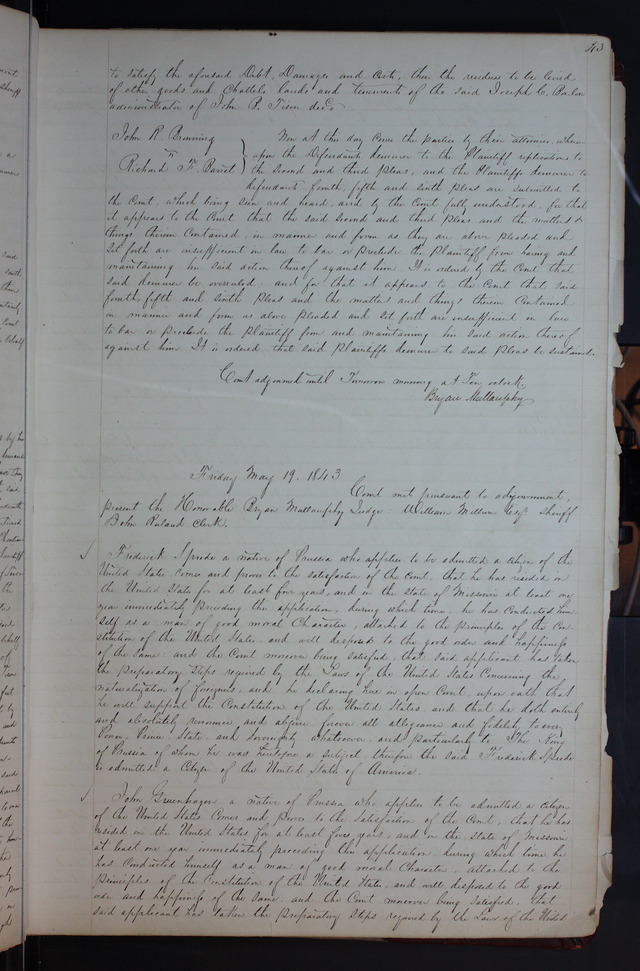 43
to satisfy the aforesaid Debt, Damages and Costs, then the residue to be levied
of other goods and Chattels lands and tenements of the said Joseph C.
administrator of John B. Tison decd.
John R
vs
Richard F Barret
Now at this day come the parties by their attornies, where
upon the Defendants demurer to the Plaintiff replications to
the second and third pleas, and the Plaintiffs demurer to
defendants fourth, fifth and sixth pleas are submitted to
the Court, which being seen and heard, and by the Court fully understood, for that
it appears to the Court that the said second and third Pleas and the matters &
things therein Contained, in manner and form as they are above pleaded and
set forth are insufficient in law to bar or preclude the Plaintiff from having and
maintaining his said action thereof against him. It is ordered by the Court that
said demurer be overruled. and for that it appears to the Court that said
fourth, fifth and sixth Pleas and the matters and things therein Contained
in manner and form as above pleaded and set forth are insufficient in law
to bar or preclude the plaintiff from and maintaining his said action thereof
against him It is ordered that said Plaintiffs demurer to said Pleas be sustained.
Court adjourned until Tomorrow morning at Ten oclock.
Bryan Mullanphy
Friday May 19. 1843
Court met pursuant to adjournment,
present the Honorable Bryan Mullanphy Judge William Milburn Esqr Sheriff
John Ruland Clerk.
Frederick Sprode a native of Prussia who applies to be admitted a citizen of the
United States, comes and proves to the satisfaction of the Court, that he has resided in
the United States for at least five years, and in the State of Missouri at least one
year immediately preceding this application, during which time he has conducted him
self as a man of good moral Character, attached to the principles of the Con-
stitution of the United States and well disposed to the good order and happiness
of the same: and the Court moreover being satisfied, that said applicant has taken
the preparatory steps required by the Laws of the United States Concerning the
naturalization of foreigners, and he declaring here in open Court, upon oath that
he will support the Constitution of the United States and that he doth entirely
and absolutely renounce and abjure forever all allegiance and fidelity to every
Power, Prince State and Sovereignty whatsoever and particularly to The King
of Prussia of whom he was heretofore a subject, therefore the said Frederick Sprode
is admitted a Citizen of the United States of America.
John Gruenhagen a native of Prussia who applies to be admitted a citizen
of the United States Comes and proves to the satisfaction of the Court, that he has
resided in the United States for at least five years, and in the State of Missouri
at least one year immediately preceding this application, during which time he
has Conducted himself as a man of good moral Character, attached to the
principles of the Constitution of the United States, and well disposed to the good
order and happiness of the same, and the Court moreover being satisfied, that
said applicant has taken the preparatory steps required by the Laws of the United